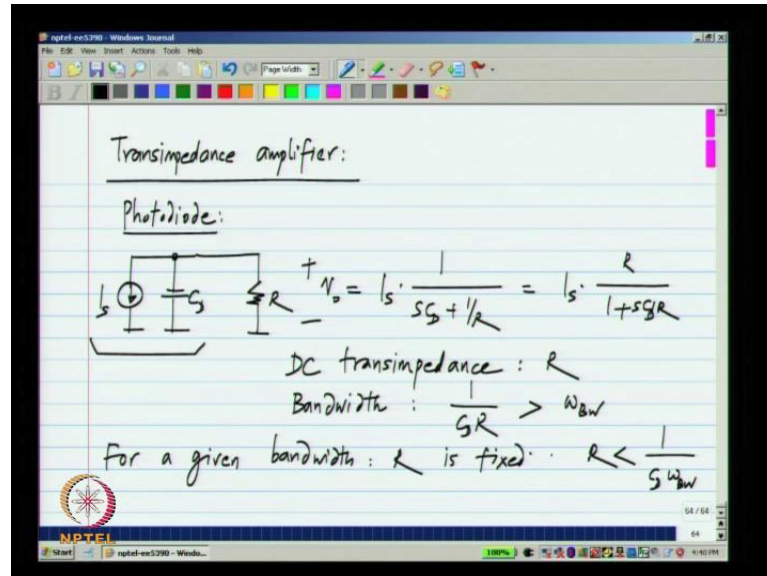 nptel-ee5390 - Windows Journal
File Edit View Insert Actions Tools Help
Page Width
B I
Transimpedance amplifier:
Photodiode:
I_s C_D R + V_o - = I_s · 1 / (sC_D + 1/R) = I_s · R / (1 + sC_D R)
DC transimpedance : R
Bandwidth : 1 / (C_D R) > ω_BW
For a given bandwidth : R is fixed.. R < 1 / (C_D ω_BW)
NPTEL
64 / 64
64
Start nptel-ee5390 - Windo... 100% 4:40 PM